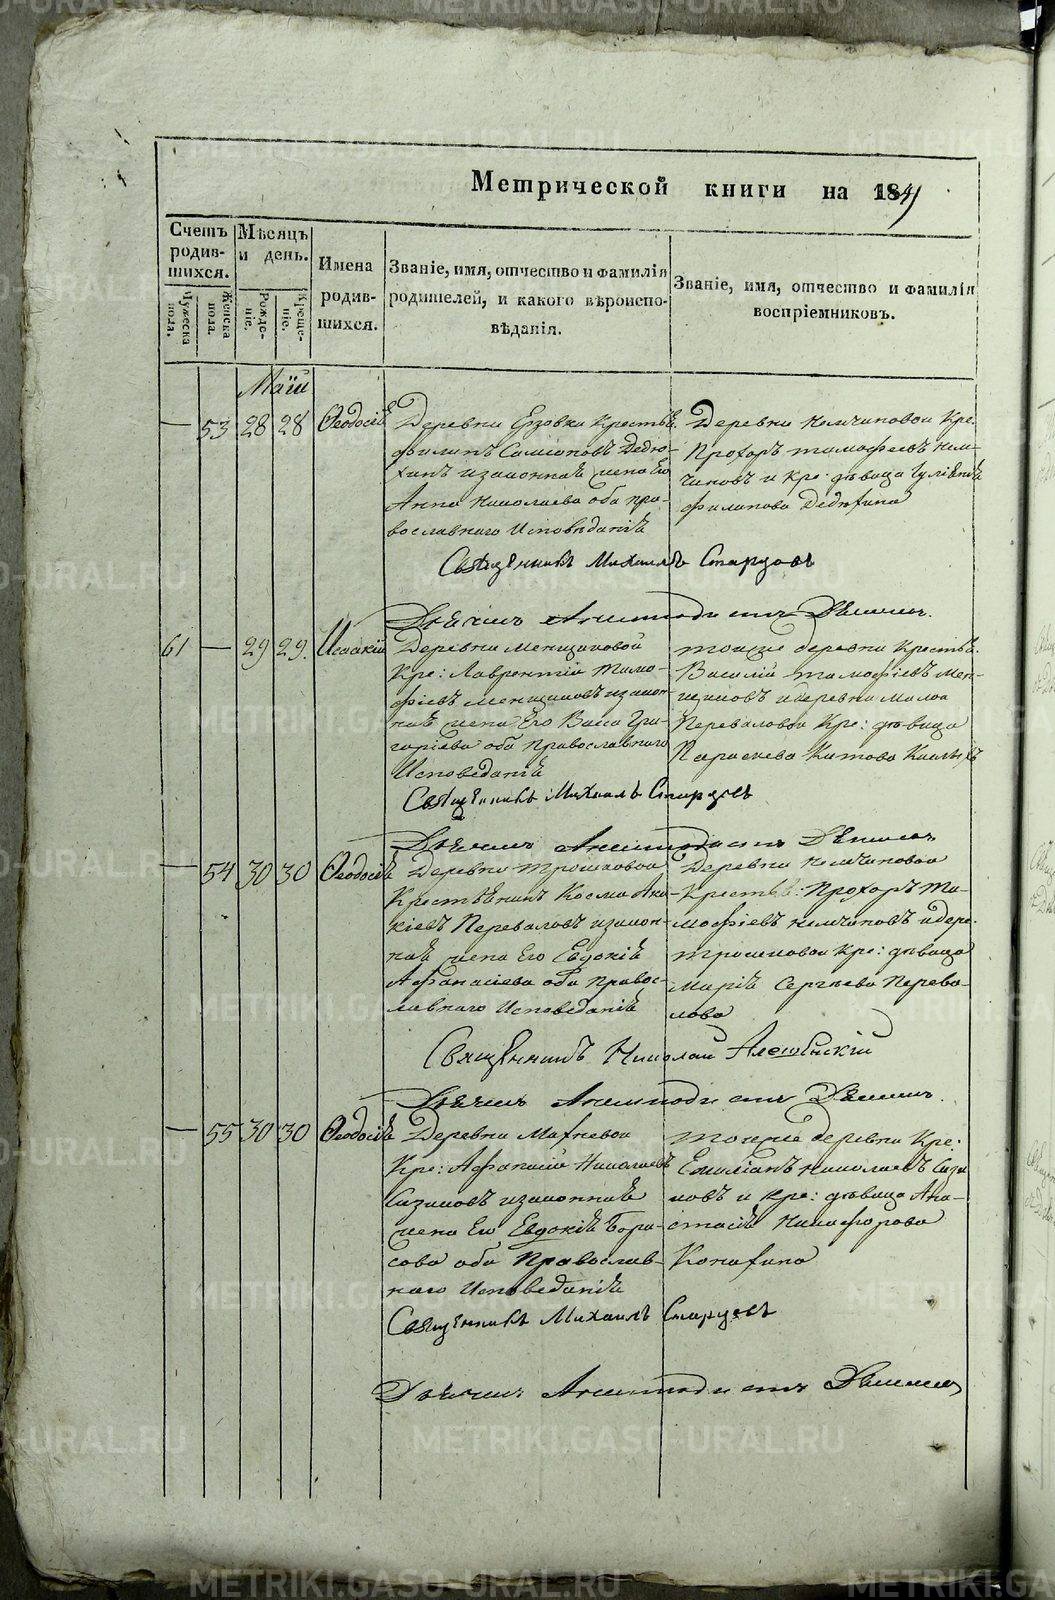 Метрической книги на 1841
Счетъ родив-шихся.
Мужеска пола.
Женска пола.
Мѣсяцъ и день.
Рожде-ніе.
Креще-ніе.
Имена родив-шихся.
Званіе, имя, отчество и фамилія
родителей, и какого вѣроиспо-
вѣданія.
Званіе, имя, отчество и фамилія
воспріемниковъ.
Маій
— 53 28 28 Ѳеодосіѣ
Деревни Ерзовки Крестья:
Филипъ Самсоновъ Дедю-
хинъ изаконнаѣ жена Его
Анна Николаева оба пра-
вославнаго Исповѣданіѣ
Деревни Немчиновой Кре:
Прохоръ тимофеевъ Нем-
чиновъ и Кре: дѣвица
Филипова Дедюхина
Священникъ Михаилъ Старцовъ
61 — 29 29 Исаакій
Деревни Менщиковой
Кре: Лаврентій Тимо-
фіевъ Менщиковъ изакон-
наѣ жена Его Васса Гри-
горіева оба Православнаго
Исповеданіѣ
тоиже деревни Крестья:
Василій тимофіевъ Мен-
щиковъ идеревни Малой
Переваловой Кре: дѣвица
Параскева Титова
Священникъ Михаилъ Старцовъ
— 54 30 30 Ѳеодосіѣ
Деревни трошковой
Крестьѣнинъ Косма
Переваловъ изакон-
наѣ жена Его Евдокіѣ
Афанасіева оба Правос-
лавнаго Исповеданіѣ
Деревни Немчиновой
Крестья: Прохоръ Ти-
мофіевъ Немчиновъ идере:
трошковой Кре: дѣвица
Маріѣ Сергѣева Перева-
лова
Священникъ Николай
— 55 30 30 Ѳеодосіѣ
Деревни Махневой
Кре: Афанасій Николаевъ
Сизиковъ изаконнаѣ
жена Его Евдокіѣ Бори-
сова оба Православ-
наго Исповеданіѣ
тоиже деревни Кре:
Емиліанъ Николаевъ Сизи-
ковъ и Кре: дѣвица Ана-
стасіѣ Никифорова
Конахина
Священникъ Михаилъ Старцовъ